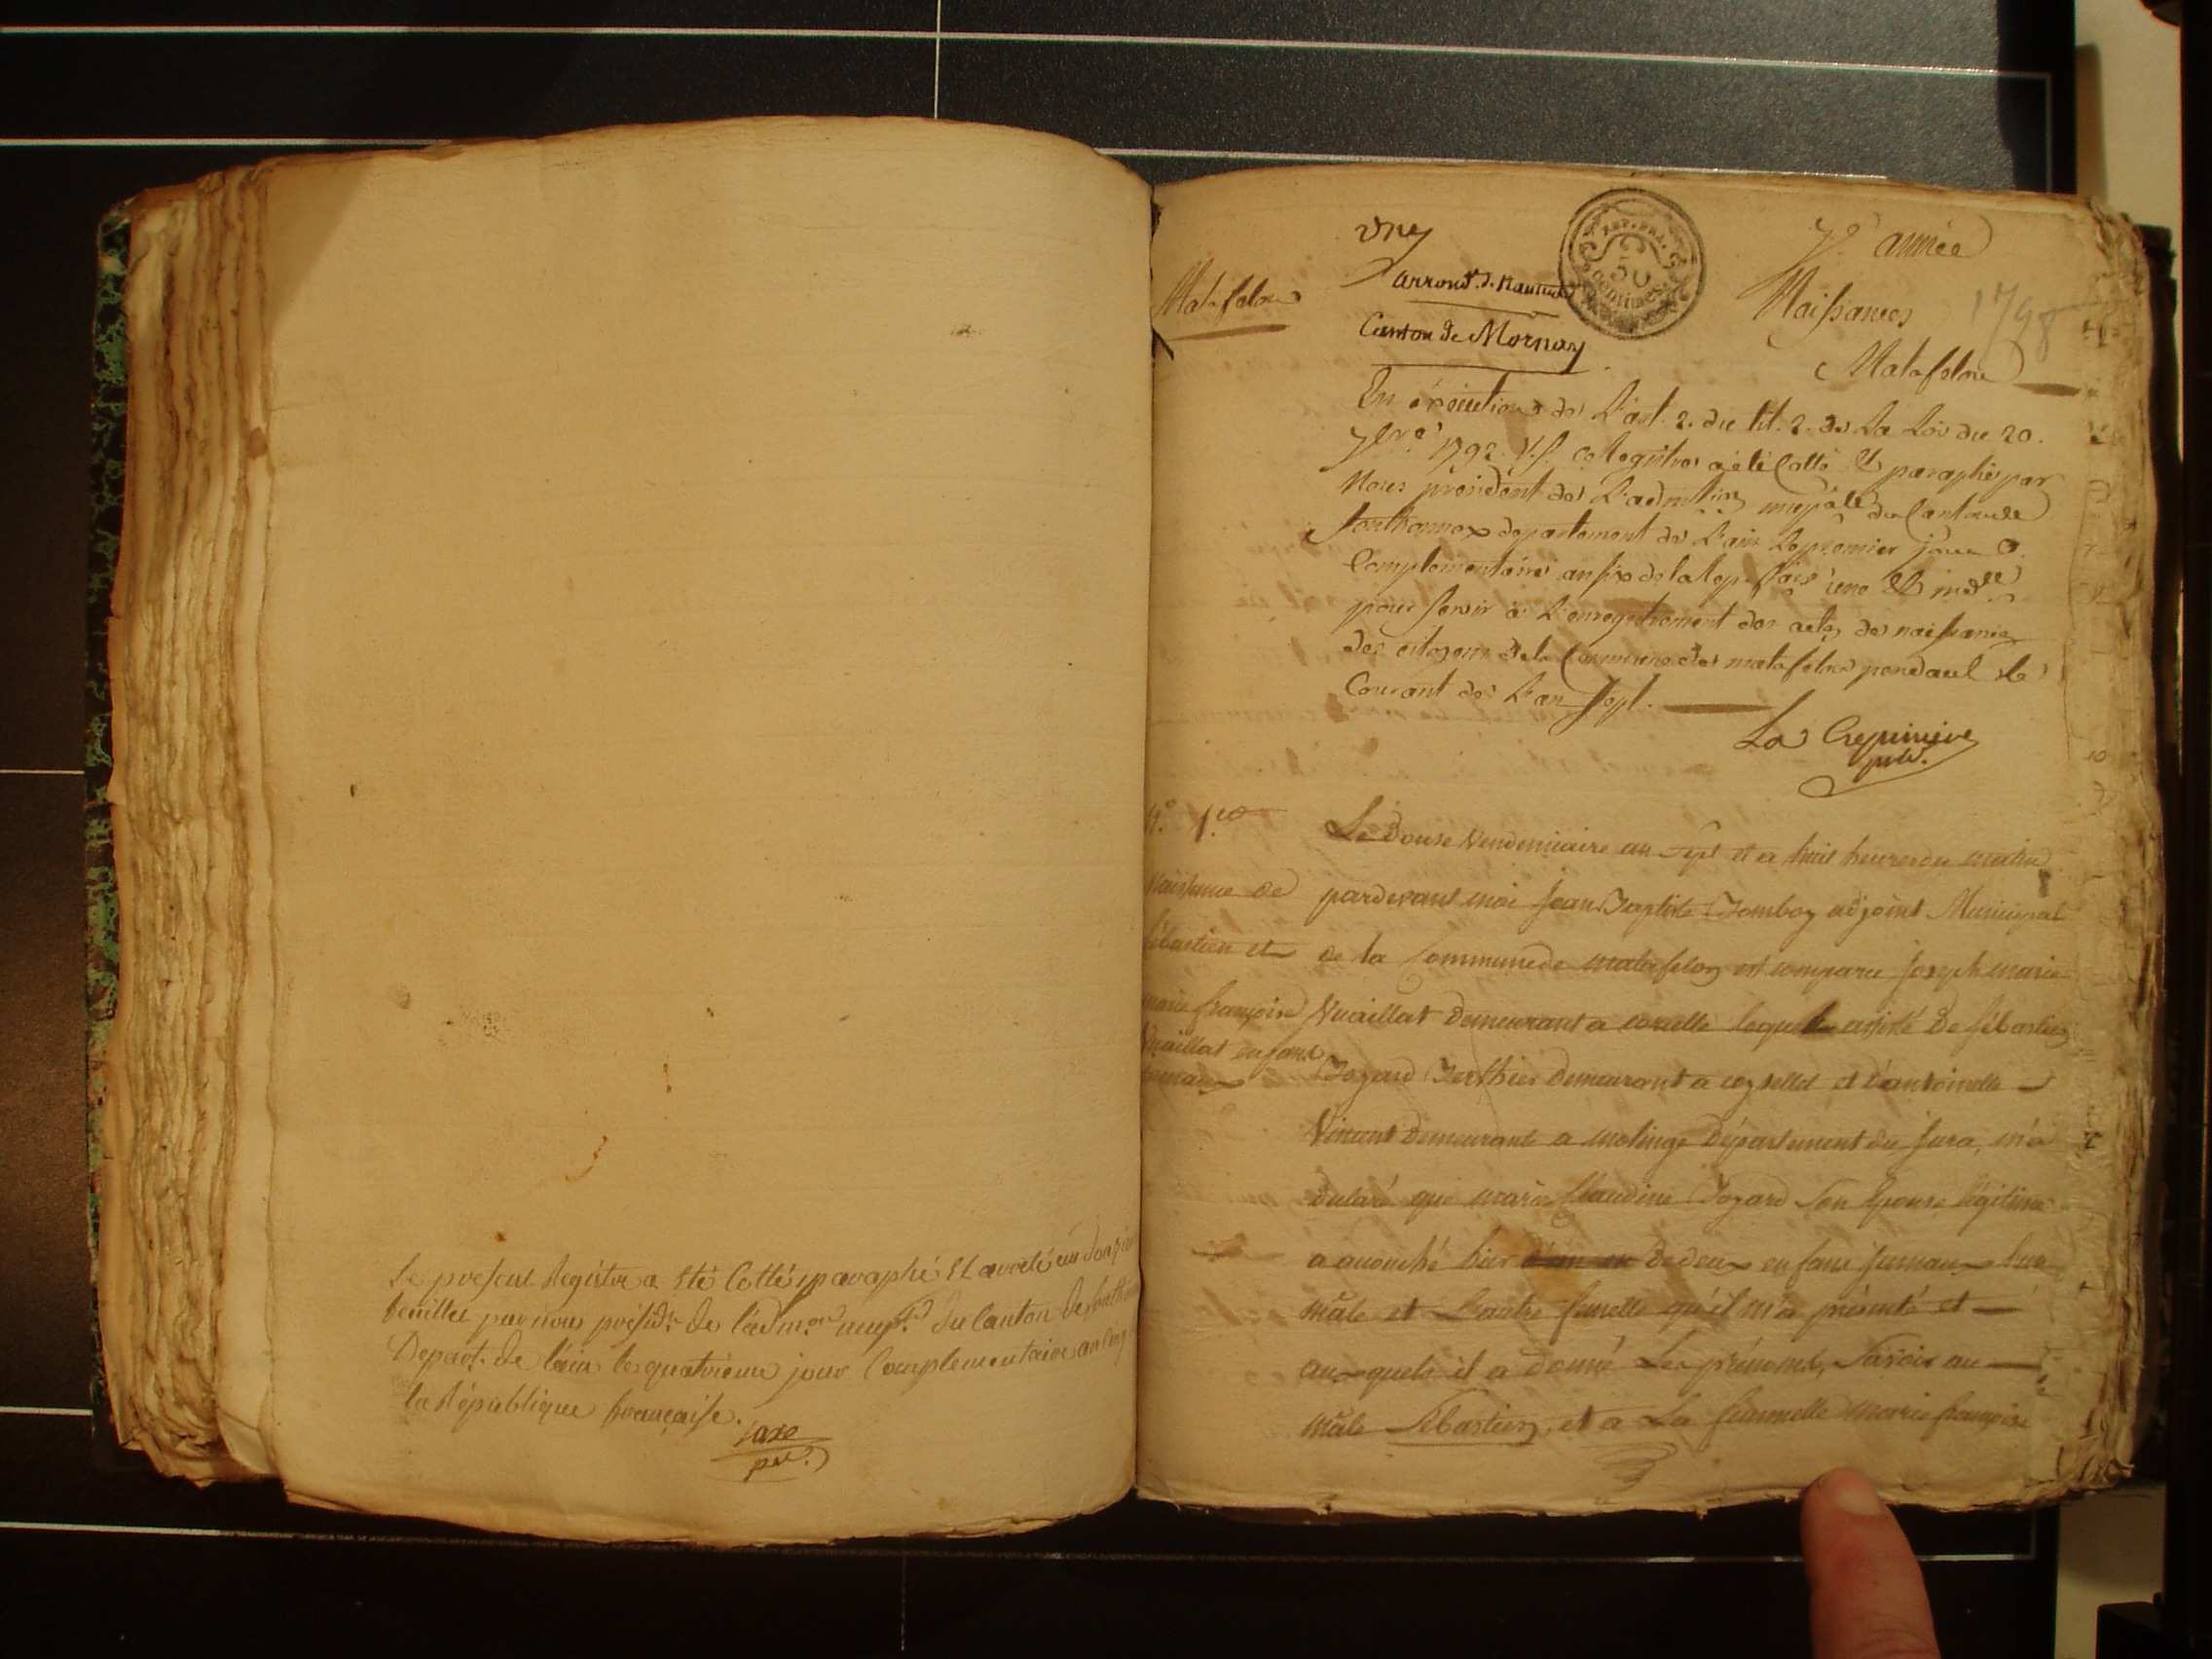 Le present Registre a été Cotté, paraphé et arreté en
feuillet par nous présidt. de l'adm.on mup.le du Canton de
Depart. de l'ain le quatrieme jour Complementaire an cinq
la République française.
pdt.
une
Matafelon
arrond.t de Nantua
Canton de Mornay
REP. FRA.
50
centimes
7.e année
Naissances
1798
Matafelon
En éxécution de L'art. 2. du tit. 2. de La Loi du 20.
7bre. 1792. V.S. ce Registre a été Cotté et paraphé par
Nous président de L'admtion mupale du Canton de
Sonthonnax departement de L'ain Le premier jour
Complementaire an six de la Rep. fçaise une et indlle
pour servir à L'enregistrement des actes de naissance
des citoyens de la Commune de matafelon pendant le
Courant de L'an Sept.
La Crepiniere
pdt.
N.° 1.er
Naissance de
Sébastien et
marie françoise
Vuaillat enfans
jumeaux
Le douse Vendemiaire an Sept et a huit heures du matin
pardevant moi Jean Baptiste adjoint Municipal
de la Commune de matafelon est comparu joseph marie
Vuaillat demeurant a corcelle lequel assisté de Sébastien
Berthier demeurant a et d'antoinette
Vincent demeurante a molinge Département du jura, m'a
declaré que marie Claudine son Epouse légitime
a acouché hier de deux enfans jumeaux l'un
mâle et L'autre femelle qu'il m'a présenté et
auxquels il a donné Les prénoms, Savoir au
mâle Sébastien, et a La femmelle marie françoise